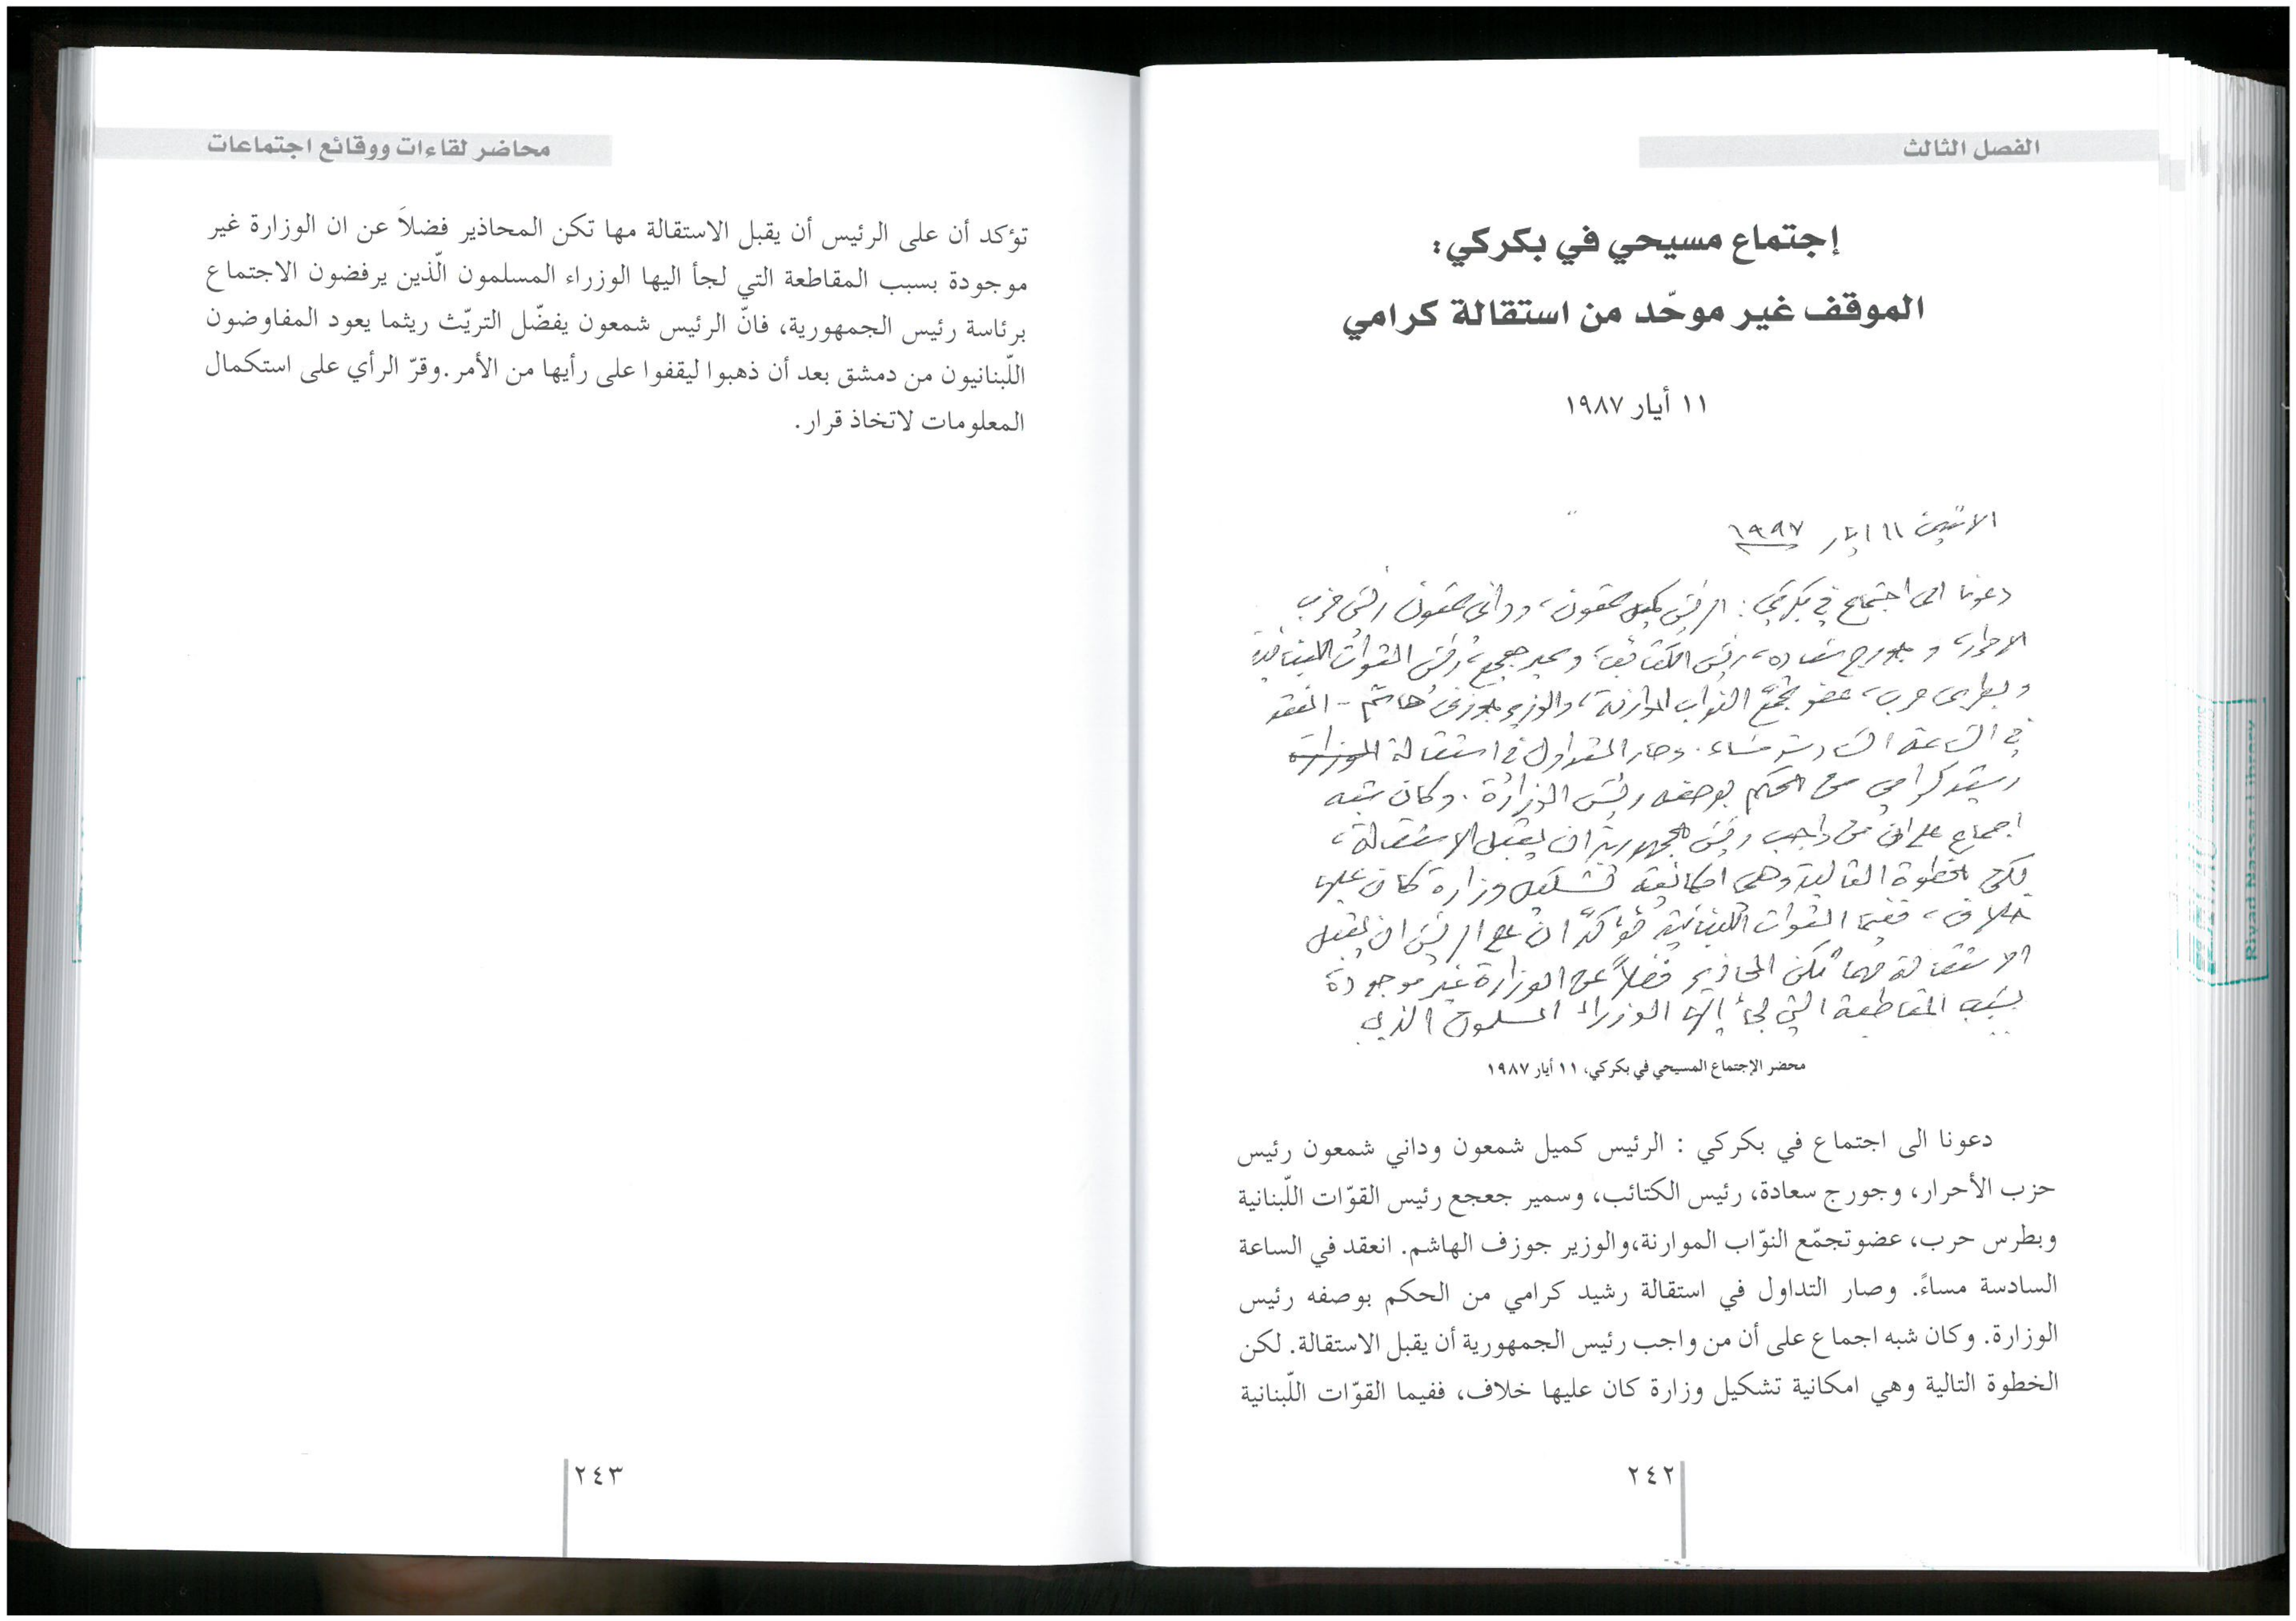 الفصل الثالث
إجتماع مسيحي في بكركي:
الموقف غير موحّد من استقالة كرامي
١١ أيار ١٩٨٧
الاثنين ١١ ايار
دعونا الى اجتماع في بكركي: الرئيس كميل شمعون، وداني شمعون رئيس حزب
الاحرار، وجورج سعاده، رئيس الكتائب، وسمير جعجع، رئيس القوات اللبنانية
وبطرس حرب، عضو تجمّع النواب الموارنة، والوزير جوزف هاشم - انعقد
في الساعة السادسة مساء. وصار التداول في استقالة الوزارة
رشيد كرامي من الحكم بوصفه رئيس الوزارة. وكان شبه
اجماع على ان من واجب رئيس الجمهورية ان يقبل الاستقالة،
لكن الخطوة التالية وهي امكانية تشكيل وزارة كان عليها
خلاف، ففيما القوات اللبنانية تؤكد ان على الرئيس ان يقبل
الاستقالة مهما تكن المحاذير فضلاً عن الوزارة غير موجودة
بسبب المقاطعة التي لجأ إليها الوزراء المسلمون الذين
محضر الإجتماع المسيحي في بكركي، ١١ أيار ١٩٨٧
دعونا الى اجتماع في بكركي : الرئيس كميل شمعون وداني شمعون رئيس
حزب الأحرار، وجورج سعادة، رئيس الكتائب، وسمير جعجع رئيس القوّات اللّبنانية
وبطرس حرب، عضوتجمّع النوّاب الموارنة،والوزير جوزف الهاشم. انعقد في الساعة
السادسة مساءً. وصار التداول في استقالة رشيد كرامي من الحكم بوصفه رئيس
الوزارة. وكان شبه اجماع على أن من واجب رئيس الجمهورية أن يقبل الاستقالة. لكن
الخطوة التالية وهي امكانية تشكيل وزارة كان عليها خلاف، ففيما القوّات اللّبنانية
٢٤٢
Riyad Nassar Library
محاضر لقاءات ووقائع اجتماعات
تؤكد أن على الرئيس أن يقبل الاستقالة مها تكن المحاذير فضلاً عن ان الوزارة غير
موجودة بسبب المقاطعة التي لجأ اليها الوزراء المسلمون الّذين يرفضون الاجتماع
برئاسة رئيس الجمهورية، فانّ الرئيس شمعون يفضّل التريّث ريثما يعود المفاوضون
اللّبنانيون من دمشق بعد أن ذهبوا ليقفوا على رأيها من الأمر.وقرّ الرأي على استكمال
المعلومات لاتخاذ قرار.
٢٤٣